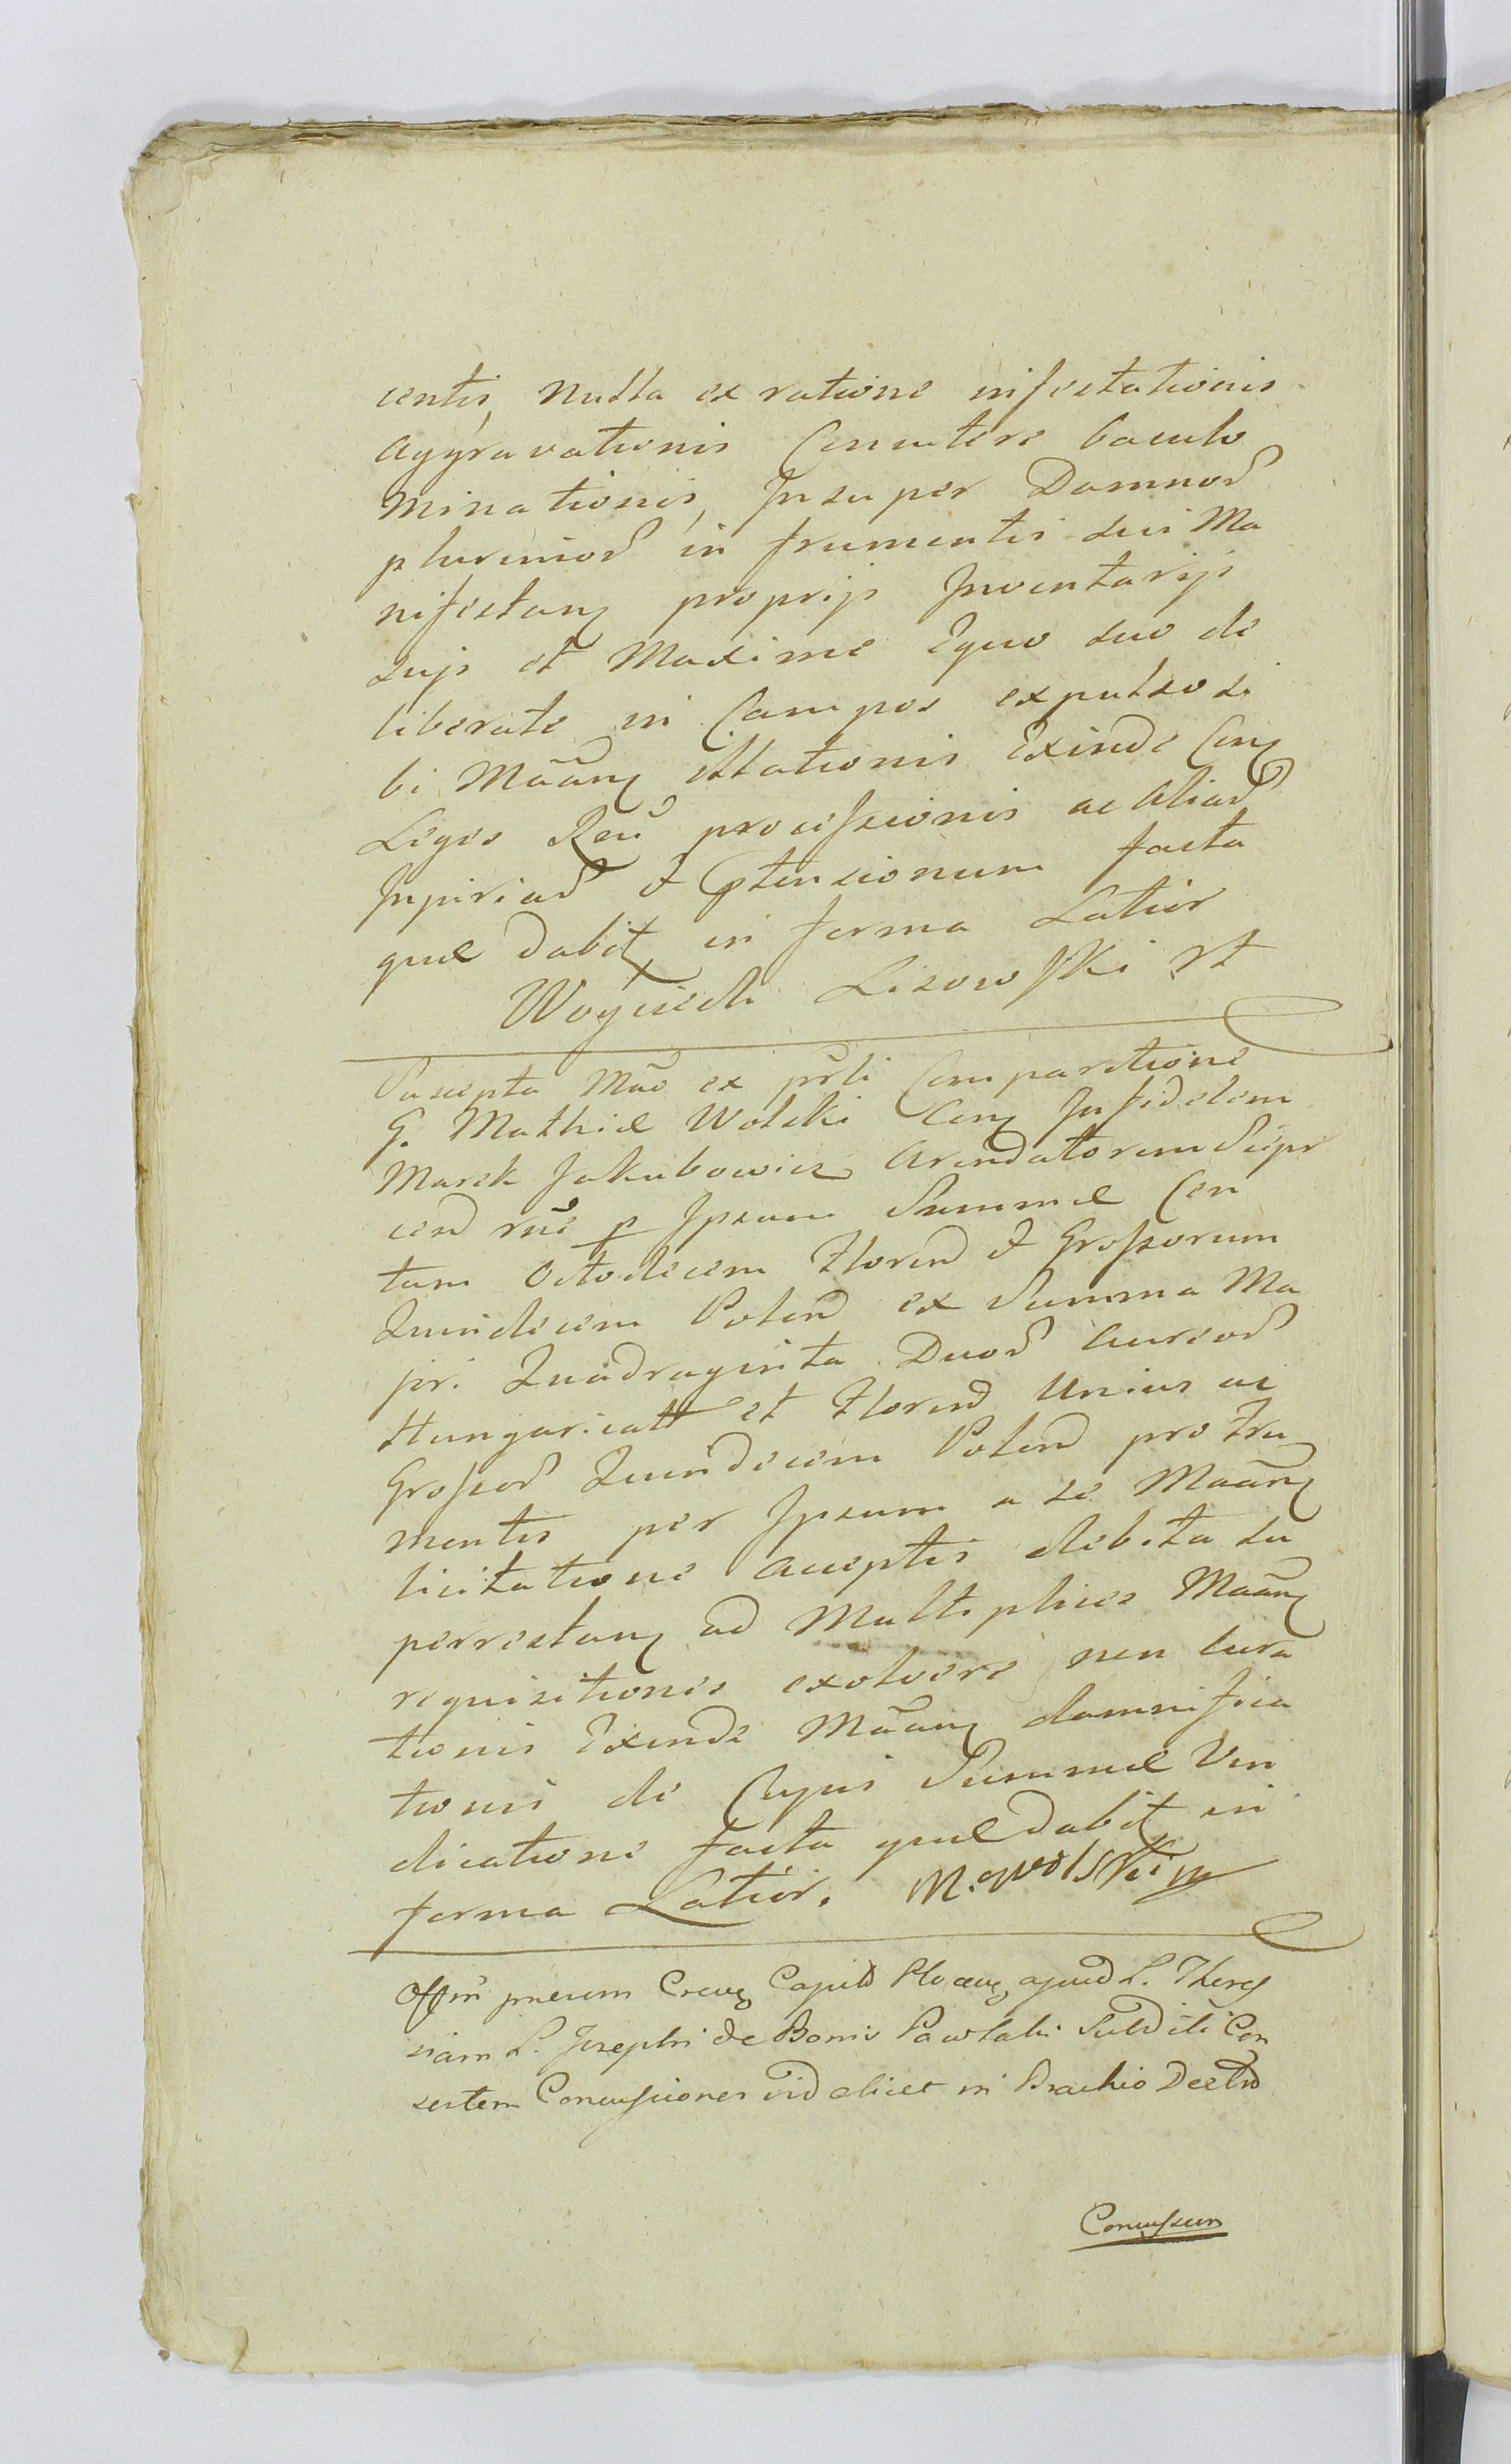 centis, nulla ex ratione infestationis
aggravationis Comutere baculo
minationis, Insuper Damnor
plurimor in frumentis sui Ma
nifestan proprijs Inventarijs
sujs et Maxime Equo suo de
liberate in Campos expulso si
bi Mãan illationis Exinde Con
Leges Reñ processionis ac Aliar
Injuriar & Ptensionum facta
quæ dabit in forma Latior
Woyciech Lisowski st
Suscepta Mãe ex prli Comparitione
G. Mathiæ Wolski Con Infidelem
Marek Jakubowicz Arendatorem
rñe p Ipsum Summæ Cen
tum Octodecim Floren & Grossorum
Quindecim Polon ex Summa Ma
jri. Quadraginta Duor Aureor
Hungarical et Floren Unius ac
Grossor Quindecem Polon pro Fru
mentis per Ipsum a se Mãan
licitatione acceptis debita su
perrestan ad Multiplices Mãan
requisitiones exolvere non Cura
tionis Exinde Mãan damnifica
tionis de Cujus Summæ Vin
dicatione facta quæ dabit in
forma Latior. M. Wolski m
Offm pnesum Capit apud L. There
siam L. Josephi de Bonis Pawlaki Subditi Con
sortem Concussiones videlicet in Brachio Dextro
Concussum